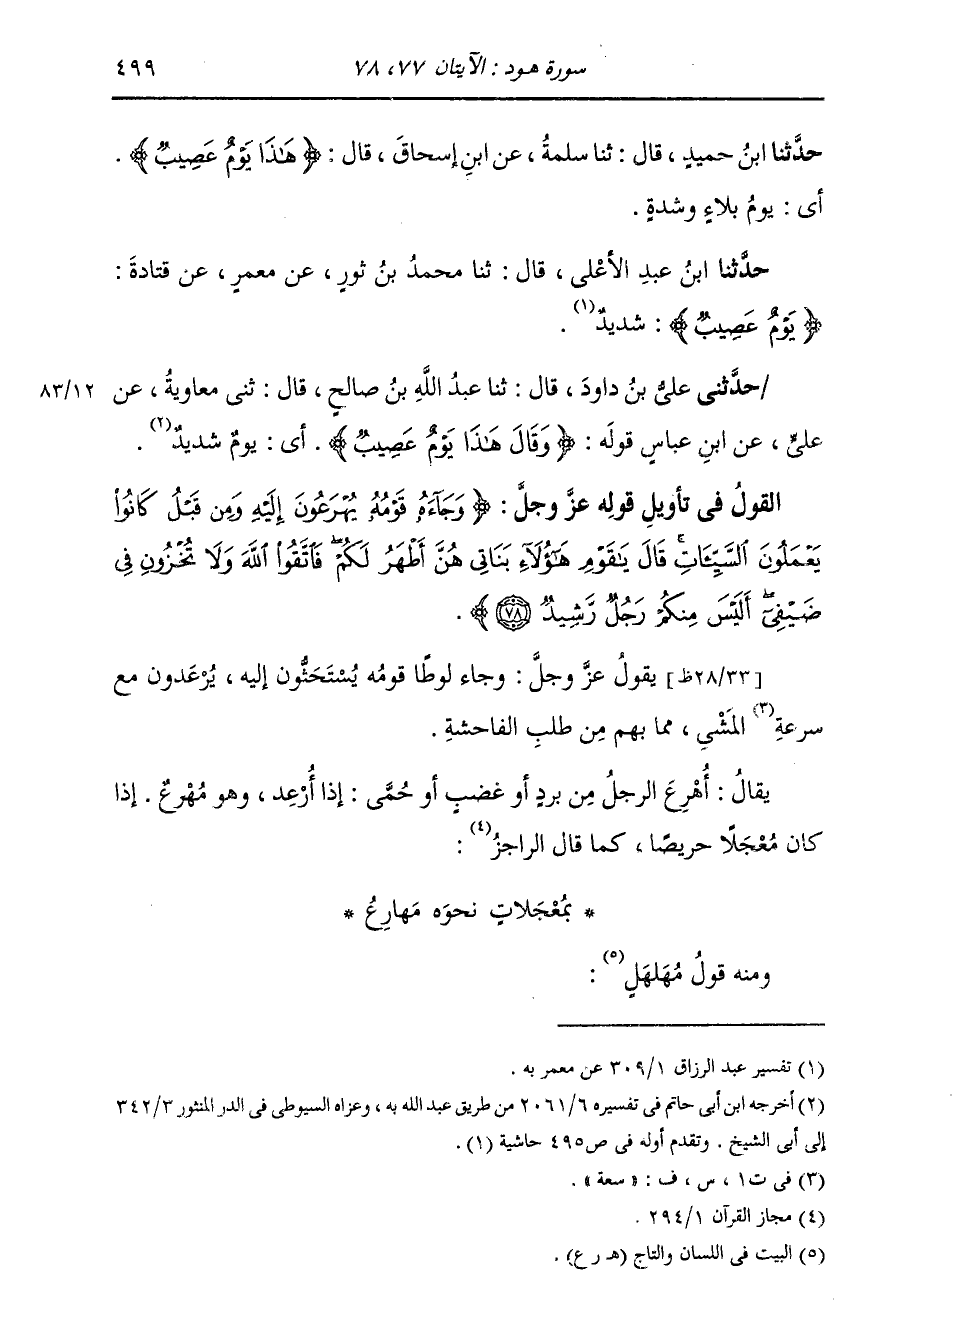 سورة هود : الآيتان ٧٧، ٧٨
٤٩٩
حدَّثنا ابنُ حميدٍ ، قال : ثنا سلمةُ ، عن ابنِ إسحاقَ ، قال : ﴿ هَٰذَا يَوْمٌ عَصِيبٌ ﴾ .
أى : يومُ بلاءٍ وشدةٍ .
حدَّثنا ابنُ عبدِ الأعْلى ، قال : ثنا محمدُ بنُ ثورٍ ، عن معمرٍ ، عن قتادةَ :
﴿ يَوْمٌ عَصِيبٌ ﴾ : شديدٌ(١) .
/حدَّثنى علىُّ بنُ داودَ ، قال : ثنا عبدُ اللَّهِ بنُ صالحٍ ، قال : ثنى معاويةُ ، عن ٨٣/١٢
علىٍّ ، عن ابنِ عباسٍ قولَه : ﴿ وَقَالَ هَٰذَا يَوْمٌ عَصِيبٌ ﴾ . أى : يومٌ شديدٌ(٢) .
القولُ فى تأويلِ قولِه عزَّ وجلَّ : ﴿ وَجَآءَهُۥ قَوْمُهُۥ يُهْرَعُونَ إِلَيْهِ وَمِن قَبْلُ كَانُوا۟
يَعْمَلُونَ ٱلسَّيِّـَٔاتِۚ قَالَ يَٰقَوْمِ هَٰٓؤُلَآءِ بَنَاتِى هُنَّ أَطْهَرُ لَكُمْۖ فَٱتَّقُوا۟ ٱللَّهَ وَلَا تُخْزُونِ فِى
ضَيْفِىٓۖ أَلَيْسَ مِنكُمْ رَجُلٌ رَّشِيدٌ ٧٨ ﴾ .
[٢٨/٣٣ظ] يقولُ عزَّ وجلَّ : وجاء لوطًا قومُه يُسْتَحَثُّون إليه ، يُرْعَدون مع
سرعةِ(٣) المَشْىِ ، مما بهم مِن طلبِ الفاحشةِ .
يقالُ : أُهْرِعَ الرجلُ مِن بردٍ أو غضبٍ أو حُمَّى : إذا أُرْعِد ، وهو مُهْرعٌ . إذا
كان مُعْجَلًا حريصًا ، كما قال الراجزُ(٤) :
* بمُعْجَلاتٍ نحوَه مَهارِعُ *
ومنه قولُ مُهَلهَلٍ(٥) :
(١) تفسير عبد الرزاق ٣٠٩/١ عن معمر به .
(٢) أخرجه ابن أبى حاتم فى تفسيره ٢٠٦١/٦ من طريق عبد الله به ، وعزاه السيوطى فى الدر المنثور ٣٤٢/٣
إلى أبى الشيخ . وتقدم أوله فى ص٤٩٥ حاشية (١) .
(٣) فى ت١ ، س ، ف : « سعة » .
(٤) مجاز القرآن ٢٩٤/١ .
(٥) البيت فى اللسان والتاج (هـ ر ع) .